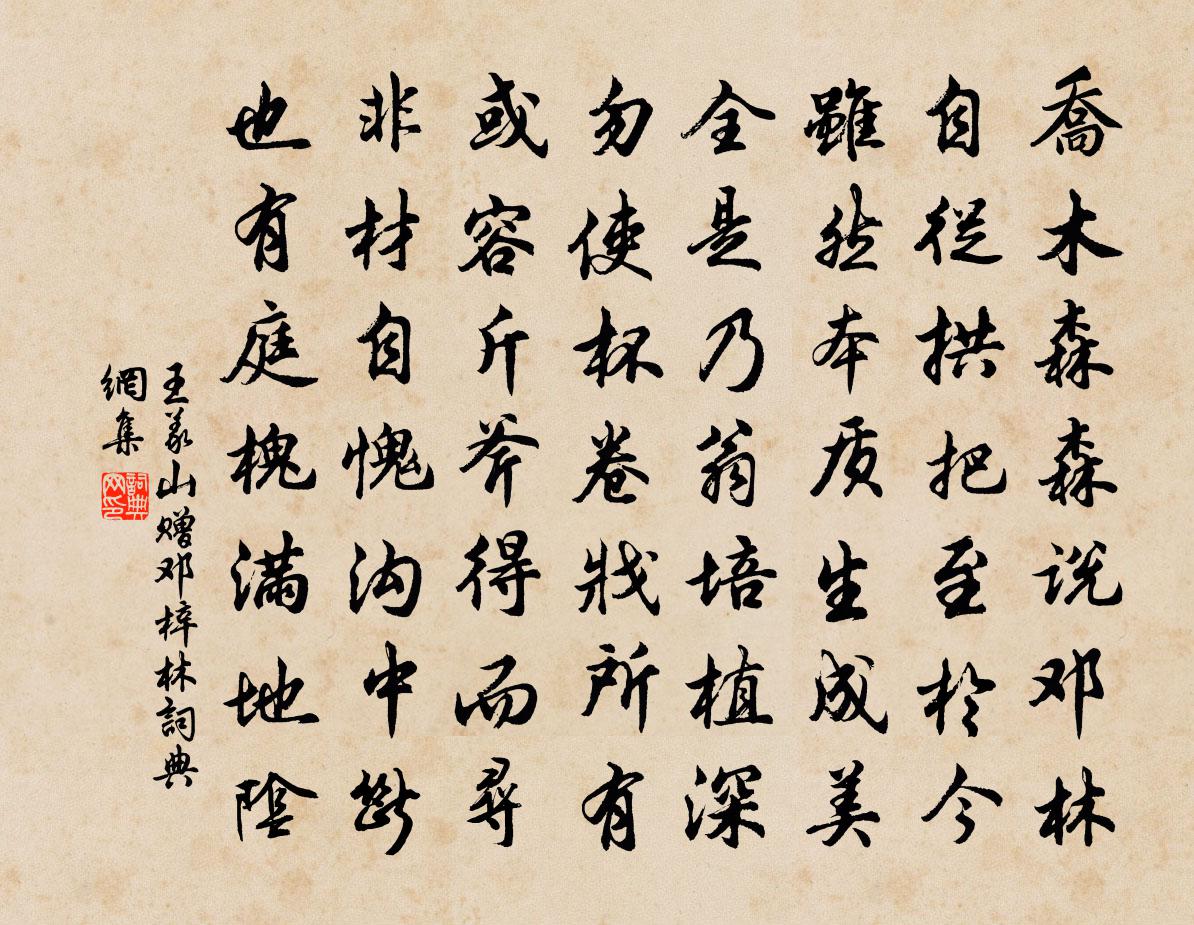 喬木森森说邓林
自従拱把至於今
雖然本质生成美
全是乃翁培植深
勿使杯卷戕所有
或容斤斧得而尋
非材自愧沟中斷
也有庭槐满地陰
王义山赠邓梓林詞典
網集
詞典网印